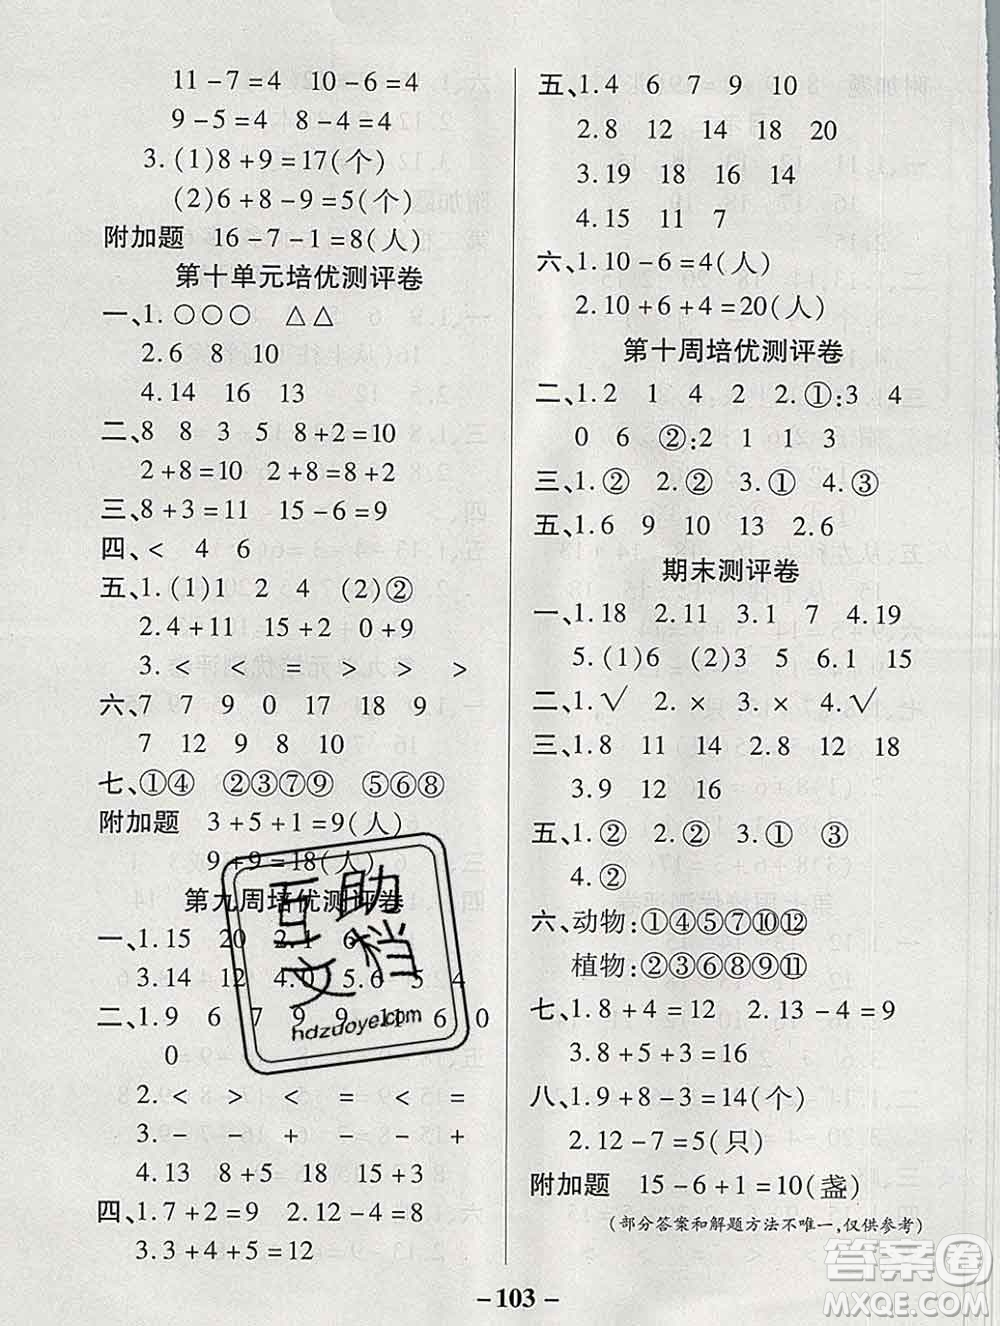 11－7＝4　10－6＝4
9－5＝4　8－4＝4
3.(1)8＋9＝17(个)
(2)6＋8－9＝5(个)
附加题　16－7－1＝8(人)
第十单元培优测评卷
一、1.○○○　△△
2.6　8　10
4.14　16　19
二、8　8　3　5　8＋2＝10
2＋8＝10　8＋2＝8＋2
三、8＋3＝11　15－6＝9
四、<　4　6
五、1.(1)1　2　4　(2)②
2.4＋11　15＋2　0＋9
3.<　<　＝　>　>　>
六、7　7　9　0　17　18　9
7　12　9　8　10
七、①④　②③⑦⑨　⑤⑥⑧
附加题　3＋5＋1＝9(人)
9＋9＝18(人)
第九周培优测评卷
一、1.15　20　2.1　6
3.14　12　4.0　5　4
二、1.9　6　7　9　9　1　6　0
0
2.<　>　<　＝　<　＝
3.－　－　＋　－　－　＋
4.13　8＋5　18　15＋3
四、1.7＋2＝9　2.12－5＝7
3.3＋4＋5＝12
五、1.4　6　7　9　10
2.8　12　14　18　20
3.19　18　16　14
4.15　11　7
六、1.10－6＝4(人)
2.10＋6＋4＝20(人)
第十周培优测评卷
二、1.2　1　4　2　2.①:3　4
0　6　②:2　1　1　3
三、1.②　2.②　3.①　4.③
五、1.6　9　10　13　2.6
期末测评卷
一、1.18　2.11　3.1　7　4.19
5.(1)6　(2)3　5　6.1　15
二、1.√　2.×　3.×　4.√
三、1.8　11　14　2.8　12　18
3.9　12　16
五、1.②　2.②　3.①　③
4.②
六、动物:①④⑤⑦⑩⑫
植物:②③⑥⑧⑨⑪
七、1.8＋4＝12　2.13－4＝9
3.8＋5＋3＝16
八、1.9＋8－3＝14(个)
2.12－7＝5(只)
附加题　15－6＋1＝10(盏)
(部分答案和解题方法不唯一,仅供参考)
－103－
互助
文档
hdzuoye.com
答案圈
MXQE.COM